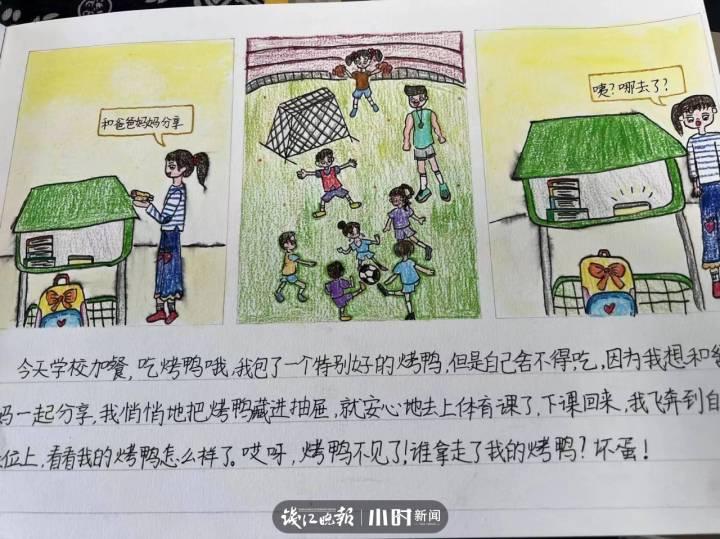 和爸爸妈妈分享
咦？哪去了？
今天学校加餐，吃烤鸭哦，我包了一个特别好的烤鸭，但是自己舍不得吃，因为我想和爸
妈一起分享，我悄悄地把烤鸭藏进抽屉，就安心地去上体育课了，下课回来，我飞奔到自
位上，看看我的烤鸭怎么样了。哎呀，烤鸭不见了！谁拿走了我的烤鸭？坏蛋！
钱江晚报 小时新闻